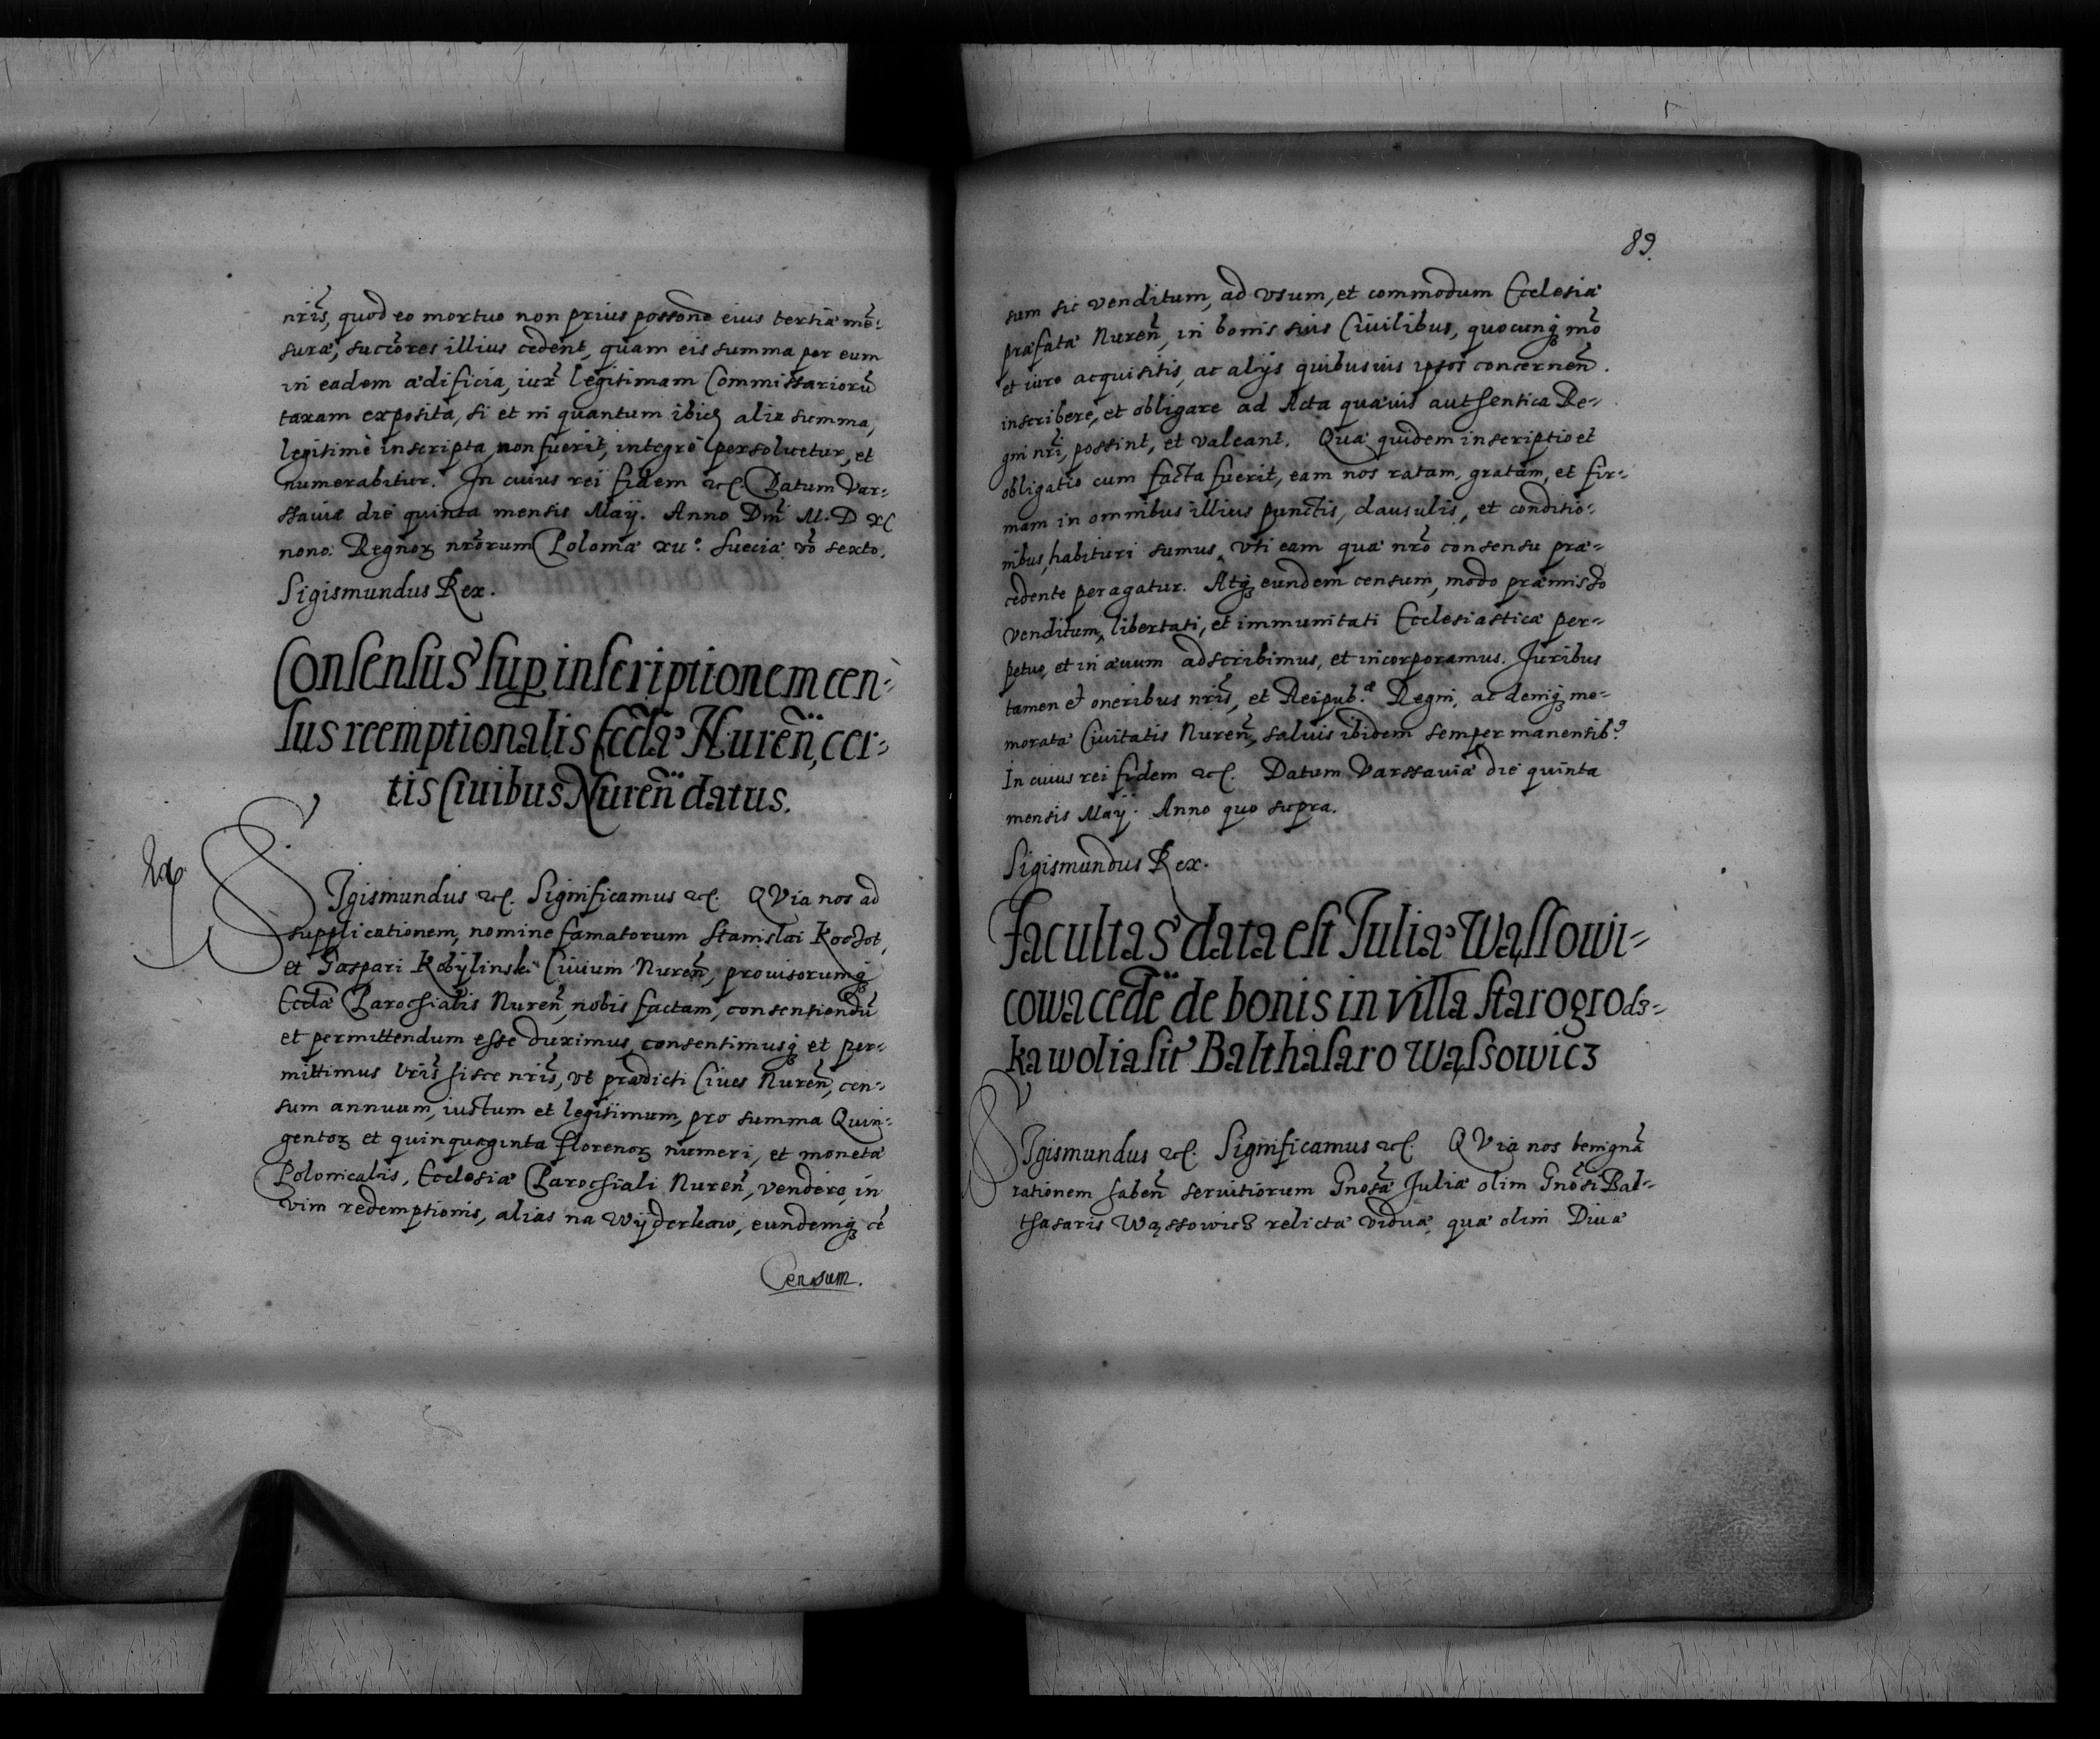 nr̃is, quod eo mortuo non prius possone eius tertiæ mẽ-
suræ, succõres illius cedent, quam eis summa per eum
in eadem ædificia, iux̃ legitimam Commissariorũ
taxam exposita, si et in quantum ibid alia summa,
legitimè inscripta non fuerit, integrè persoluetur, et
numerabitur. In cuius rei fidem etc. Datum Var-
ssauiæ die quinta mensis Maij. Anno Dñi M.D XC
nono. Regnoꝝ nr̃orum Poloniæ xii°. Sueciæ vo sexto.
Sigismundus Rex.
Consensus sup inscriptionem cen-
sus reemptionalis Eccłæ Nureñ, cer-
tis Ciuibus Nureñ datus.
SIgismundus etc. Significamus etc. QVia nos ad
supplicationem, nomine famatorum Stanislai
et Gaspari Kobylinski Ciuium Nureñ, prouisorumqꝫ
Eccłæ Parochialis Nureñ, nobis factam, consentiendũ
et permittendum esse duximus, consentimusqꝫ et per-
mittimus lr̃is hisce nr̃is, vt prædicti Ciues Nureñ, cen-
sum annuum, iustum et legitimum, pro summa Quin-
gentoꝝ et quinquaginta florenoꝝ numeri, et monetæ
Polonicalis, Ecclesiæ Parochiali Nureñ, vendere, in
vim redemptionis, alias na Wyderkaw, eundemqꝫ cẽ
Censum.
89.
sum sic venditum, ad vsum, et commodum Ecclesiæ
præfatæ Nureñ, in bonis suis Ciuilibus, quocunqꝫ mõ
et iure acquisitis, ac alijs quibusuis ipsos concerneñ.
inscribere, et obligare ad Acta quæuis authentica Re-
gni nr̃i, possint, et valeant. Quæ quidem inscriptio et
obligatio cum facta fuerit, eam nos ratam, gratam, et fir-
mam in omnibus illius punctis, clausulis, et conditio-
nibus, habituri sumus, vti eam quæ nr̃o consensu præ-
cedente peragatur. Atqꝫ eundem censum, modo præmisso
venditum, libertati, et immunitati Ecclesiasticæ per-
petuo, et in æuum adscribimus, et incorporamus. Juribus
tamen et oneribus nr̃is, et Reipub.æ Regni, ac deniqꝫ me-
moratæ Ciuitatis Nureñ, saluis ibidem semper manentibꝰ.
In cuius rei fidem etc. Datum Varssauiæ die quinta
mensis Maij. Anno quo supra.
Sigismundus Rex.
Facultas data est Juliæ Wąssowi-
cowa cedẽ de bonis in villa Starogrodz-
ka wolia sit Balthasaro Wąssowicz
SIgismundus etc. Significamus etc. QVia nos benignã
rationem habeñ seruitiorum Gnosæ Juliæ olim Gnõsi Bal-
thasaris Wąssowicz relictæ viduæ, quæ olim Diuæ